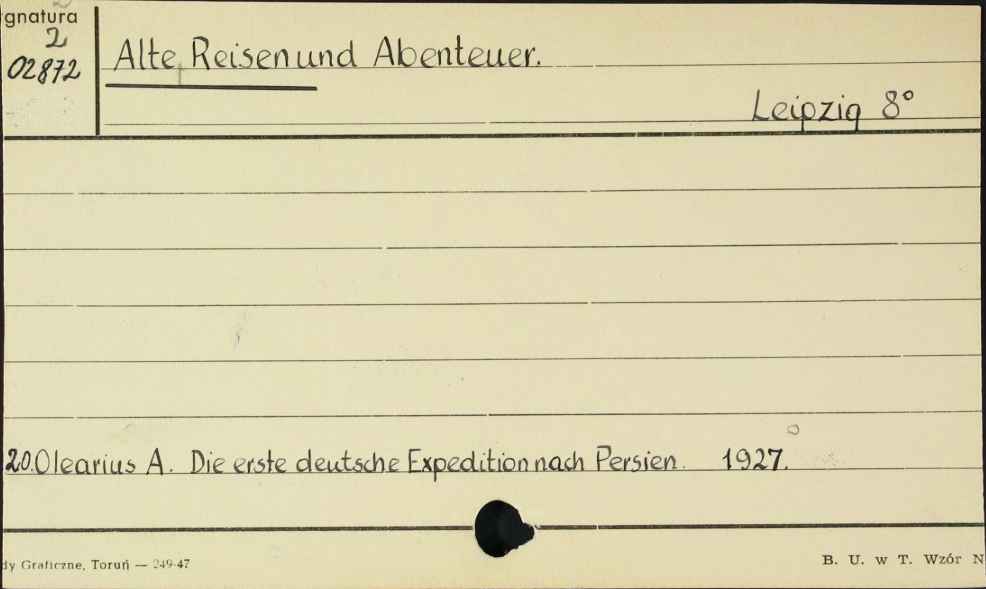 gnatura
2
02872
Alte Reisen und Abenteuer.
Leipzig 8°
20. Olearius A. Die erste deutsche Expedition nach Persien. 1927.
dy Graficzne, Toruń — 249-47
B. U. w T. Wzór N